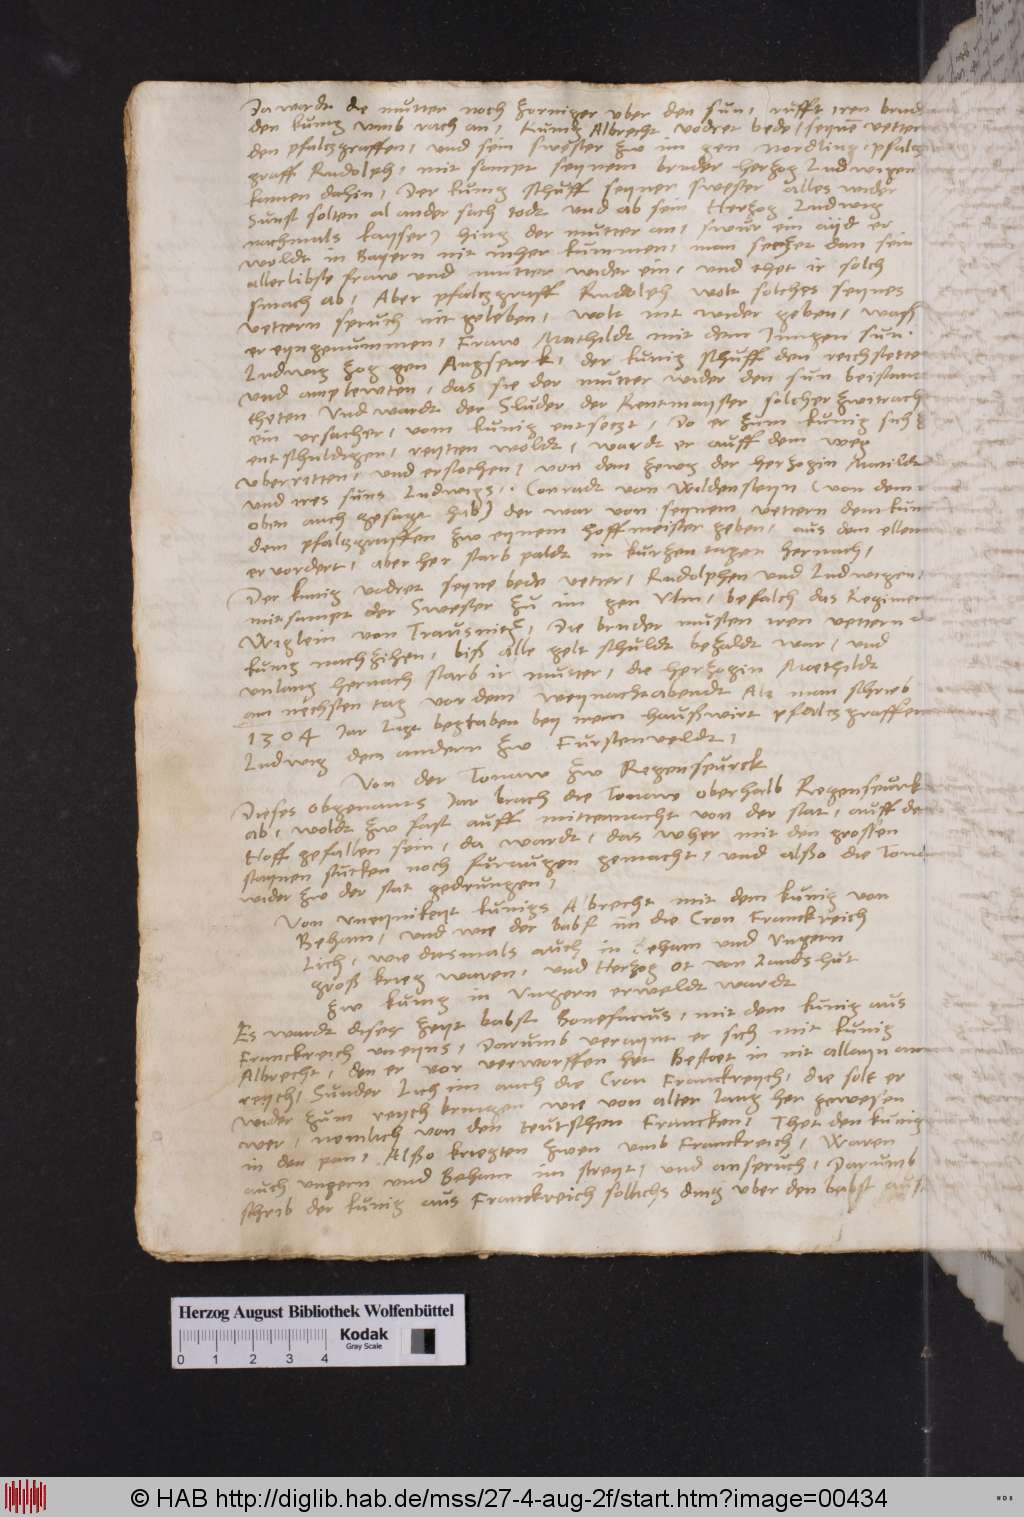 Da wardt die mutter noch zorniger vber den sun, rufft iren brud
den kunig vmb rach an, Kunig Albrecht vodret bede, seyne vetter
den pfaltzgraffen, vnd sein swester zw im gen nordling, pfaltz
graff Rudolph, mit sampt seynem bruder herzog Ludwigen
kamen dahin, Der kunig schuff seyner swester alles wider
Sunst solten al ander sach todt vnd ab sein Herzog Ludwig
nachmals kayser) hing der mutter an, swur ein ayd er
woldt in Bayern nit mher kummen, man sechet dan sein
allerlibste fraw vnd mutter wider ein, vnd thet ir solch
smach ab, Aber pfaltzgraff Rudolph wolt solches seynes
vettern spruch nit geleben, wolt nit wider geben, waß
er eyngenummen, Fraw Mathildt mit dem Jungen sun
Ludwig zog gen Augspurk, der kunig schuff den reichstette
vnd amptlewten, das sie der mutter wider den sun beistant
theten Vnd wardt der Sluder der Rentmayster solcher zwitrach
ein vrsacher, vom kunig entsetzt, Do er zum kunig sich
entschuldigen, reytten woldt, wardt er auff dem weg
vberritten, vnd erstochen, von dem zewg der herzogin Matildt
vnd ires suns Ludwigs, Conradt von Wildenstayn (von dem
oben auch gesagt hab) der war von seynem vettern dem kun
dem pfaltzgraffen zw eynem hoffmeister geben, aus dem ellen
ervordert, aber her starb paldt in kurzen tagen hernach,
Der kunig vodret seyne bede vetter, Rudolphen vnd Ludwigen,
mit sampt der Swester zu im gen Vlm, befalch das Regimen
Wiglein von Trausnitz, Die bruder musten iren vettern
kunig nach zihen, biß alle gelt schuldt bezaldt war, vnd
vnlang hernach starb ir mutter, die herzogin Mathildt
am nechsten tag vor dem weynacht abendt Als man schrieb
1304 Jar Ligt begraben bey irem haußwirt pfaltzgraffen
Ludwig dem andern zw Furstenveldt,
Von der Tonaw zw Regenspurck
Dieses obgenants Jar brach die Tonaw oberhalb Regenspurk
ab, woldt zw fast auff mitternacht von der stat, auff de
Hoff gefallen sein, da wardt, das wher mit den grossen
staynen stucken noch furaugen gemacht, vnd alßo die Ton
wider zw der stat gedrungen,
Von vneynikeyt kunigs Albrecht mit dem kunig von
Beham, vnd wie der babst im die Cron Franckreich
Lich, wie diesmals auch in Beham vnd Vngern
groß krieg waren, vnd Herzog ot von Landshut
zw kunig in Vngern erweldt wardt
Es wardt dieser zeyt babst Bonefacius, mit dem kunig aus
Franckreich vneyns, Darumb veraynt er sich mit kunig
Albrecht, den er vor verworffen het Bestet in nit allayn am
reych, Sunder Lich im auch die Cron Franckreych, die solt er
wider zum reych bringen wie von alter lang her gewesen
wer, nemlich von den teutschen Francken, Thet den kunig
in den pan, Alßo kriegten zwen vmb Franckreich, Waren
auch vngern vnd Beham im streyt, vnd anspruch, Darumb
schrib der kunig aus Franckreich sollichs ding vber den babst aus,
Herzog August Bibliothek Wolfenbüttel
Kodak
Gray Scale
0 1 2 3 4
© HAB http://diglib.hab.de/mss/27-4-aug-2f/start.htm?image=00434